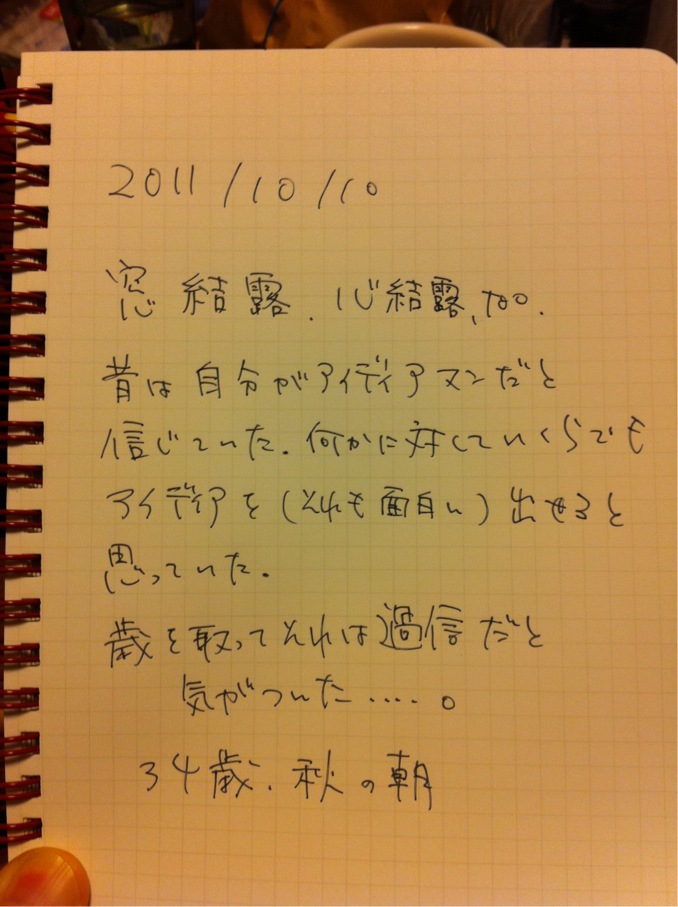 2011/10/10
窓結露、心結露、too.
昔は自分がアイディアマンだと
信じていた。何かに対していくらでも
アイディアを(それも面白い)出せると
思っていた。
歳を取ってそれは過信だと
気がついた‥‥。
34歳、秋の朝